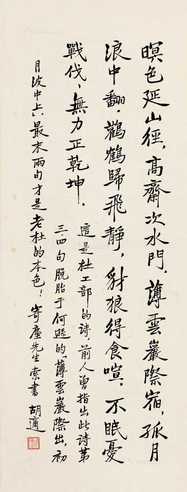 暝色延山徑,高齋次水門。薄雲巖際宿,孤月
浪中翻。鸛鶴歸飛靜,豺狼得食喧。不眠憂
戰伐,無力正乾坤。
這是杜工部的詩。前人曾指出此詩第
三四句脫胎于何遜的薄雲巖際出,初
月波中上。最末兩句才是老杜的本色!寄塵先生索書 胡適